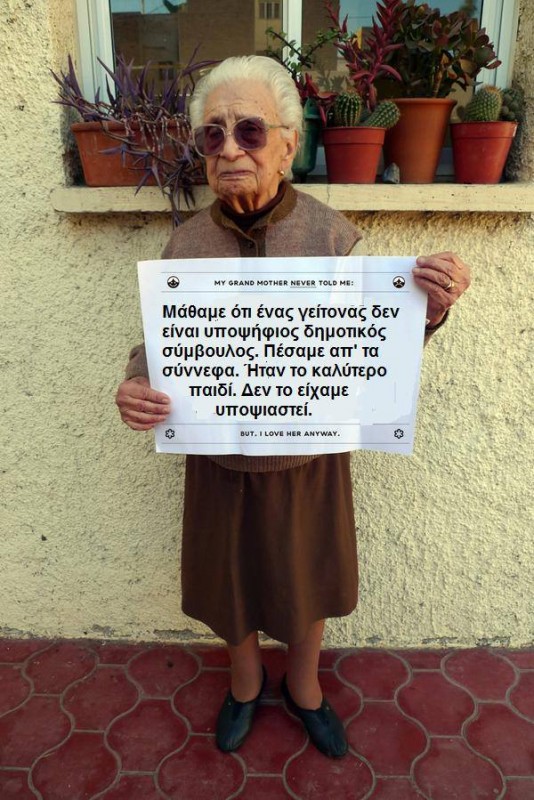 MY GRAND MOTHER NEVER TOLD ME:
Μάθαμε ότι ένας γείτονας δεν
είναι υποψήφιος δημοτικός
σύμβουλος. Πέσαμε απ' τα
σύννεφα. Ήταν το καλύτερο
παιδί. Δεν το είχαμε
υποψιαστεί.
BUT, I LOVE HER ANYWAY.